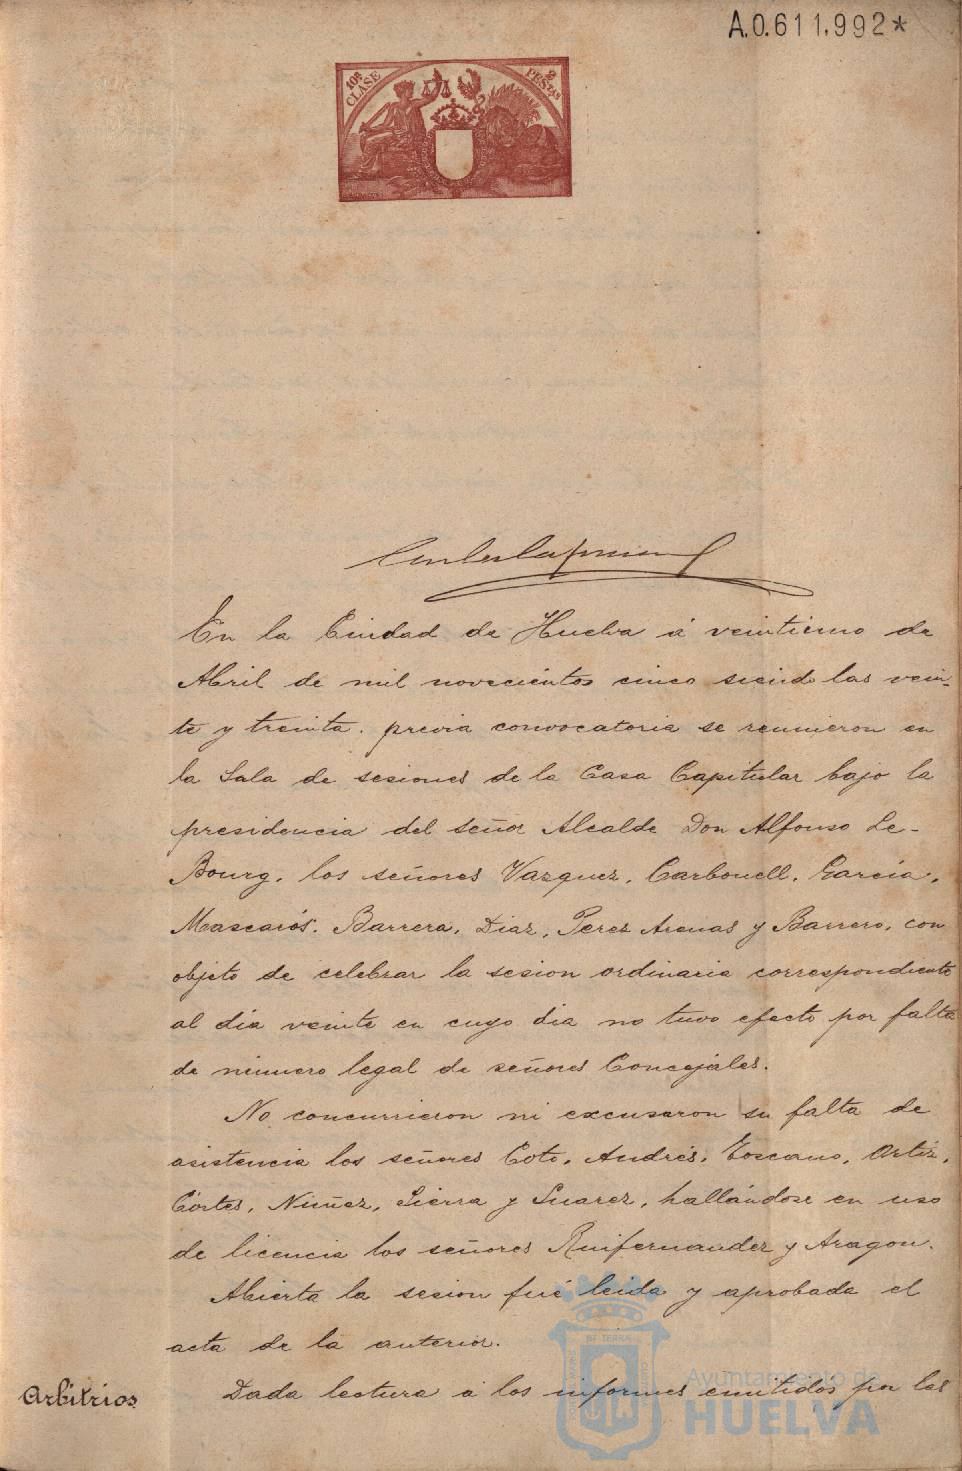 A.0.611.992*
10ª CLASE
2 PESETAS
En la Ciudad de Huelva á veintiuno de
Abril de mil novecientos cinco siendo las vein-
te y treinta, previa convocatoria se reunieron en
la Sala de sesiones de la Casa Capitular bajo la
presidencia del señor Alcalde Don Alfonso Le-
Bourg, los señores Vazquez, Carbonell, Garcia,
Mascarós, Barrera, Diaz, Perez Arenas y Barrero, con
objeto de celebrar la sesion ordinaria correspondiente
al dia veinte en cuyo dia no tuvo efecto por falta
de número legal de señores Concejales.
No concurrieron ni excusaron su falta de
asistencia los señores Coto, Andrés, Toscano, Ortiz,
Córtes, Nuñez, Sierra y Suarez, hallándose en uso
de licencia los señores Ruifernandez y Aragon.
Abierta la sesion fué leida y aprobada el
acta de la anterior.
Arbitrios
Dada lectura á los informes emitidos por las
Ayuntamiento de
HUELVA